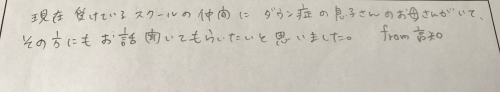 現在受けているスクールの仲間にダウン症の息子さんのお母さんがいて、
その方にもお話聞いてもらいたいと思いました。 from高知